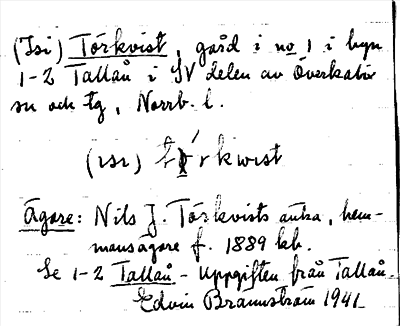 (Isi) Törkvist, gård i no 1 i byn
1-2 Tallån i SV delen av Överkalix
sn och tg, Norrb. l.
(ısı) kwist
Ägare: Nils J. Törkvists änka, hem-
mansägare f. 1889 lbb.
Se 1-2 Tallån. - Uppgiften från Tallån.
Edvin Brännström 1941